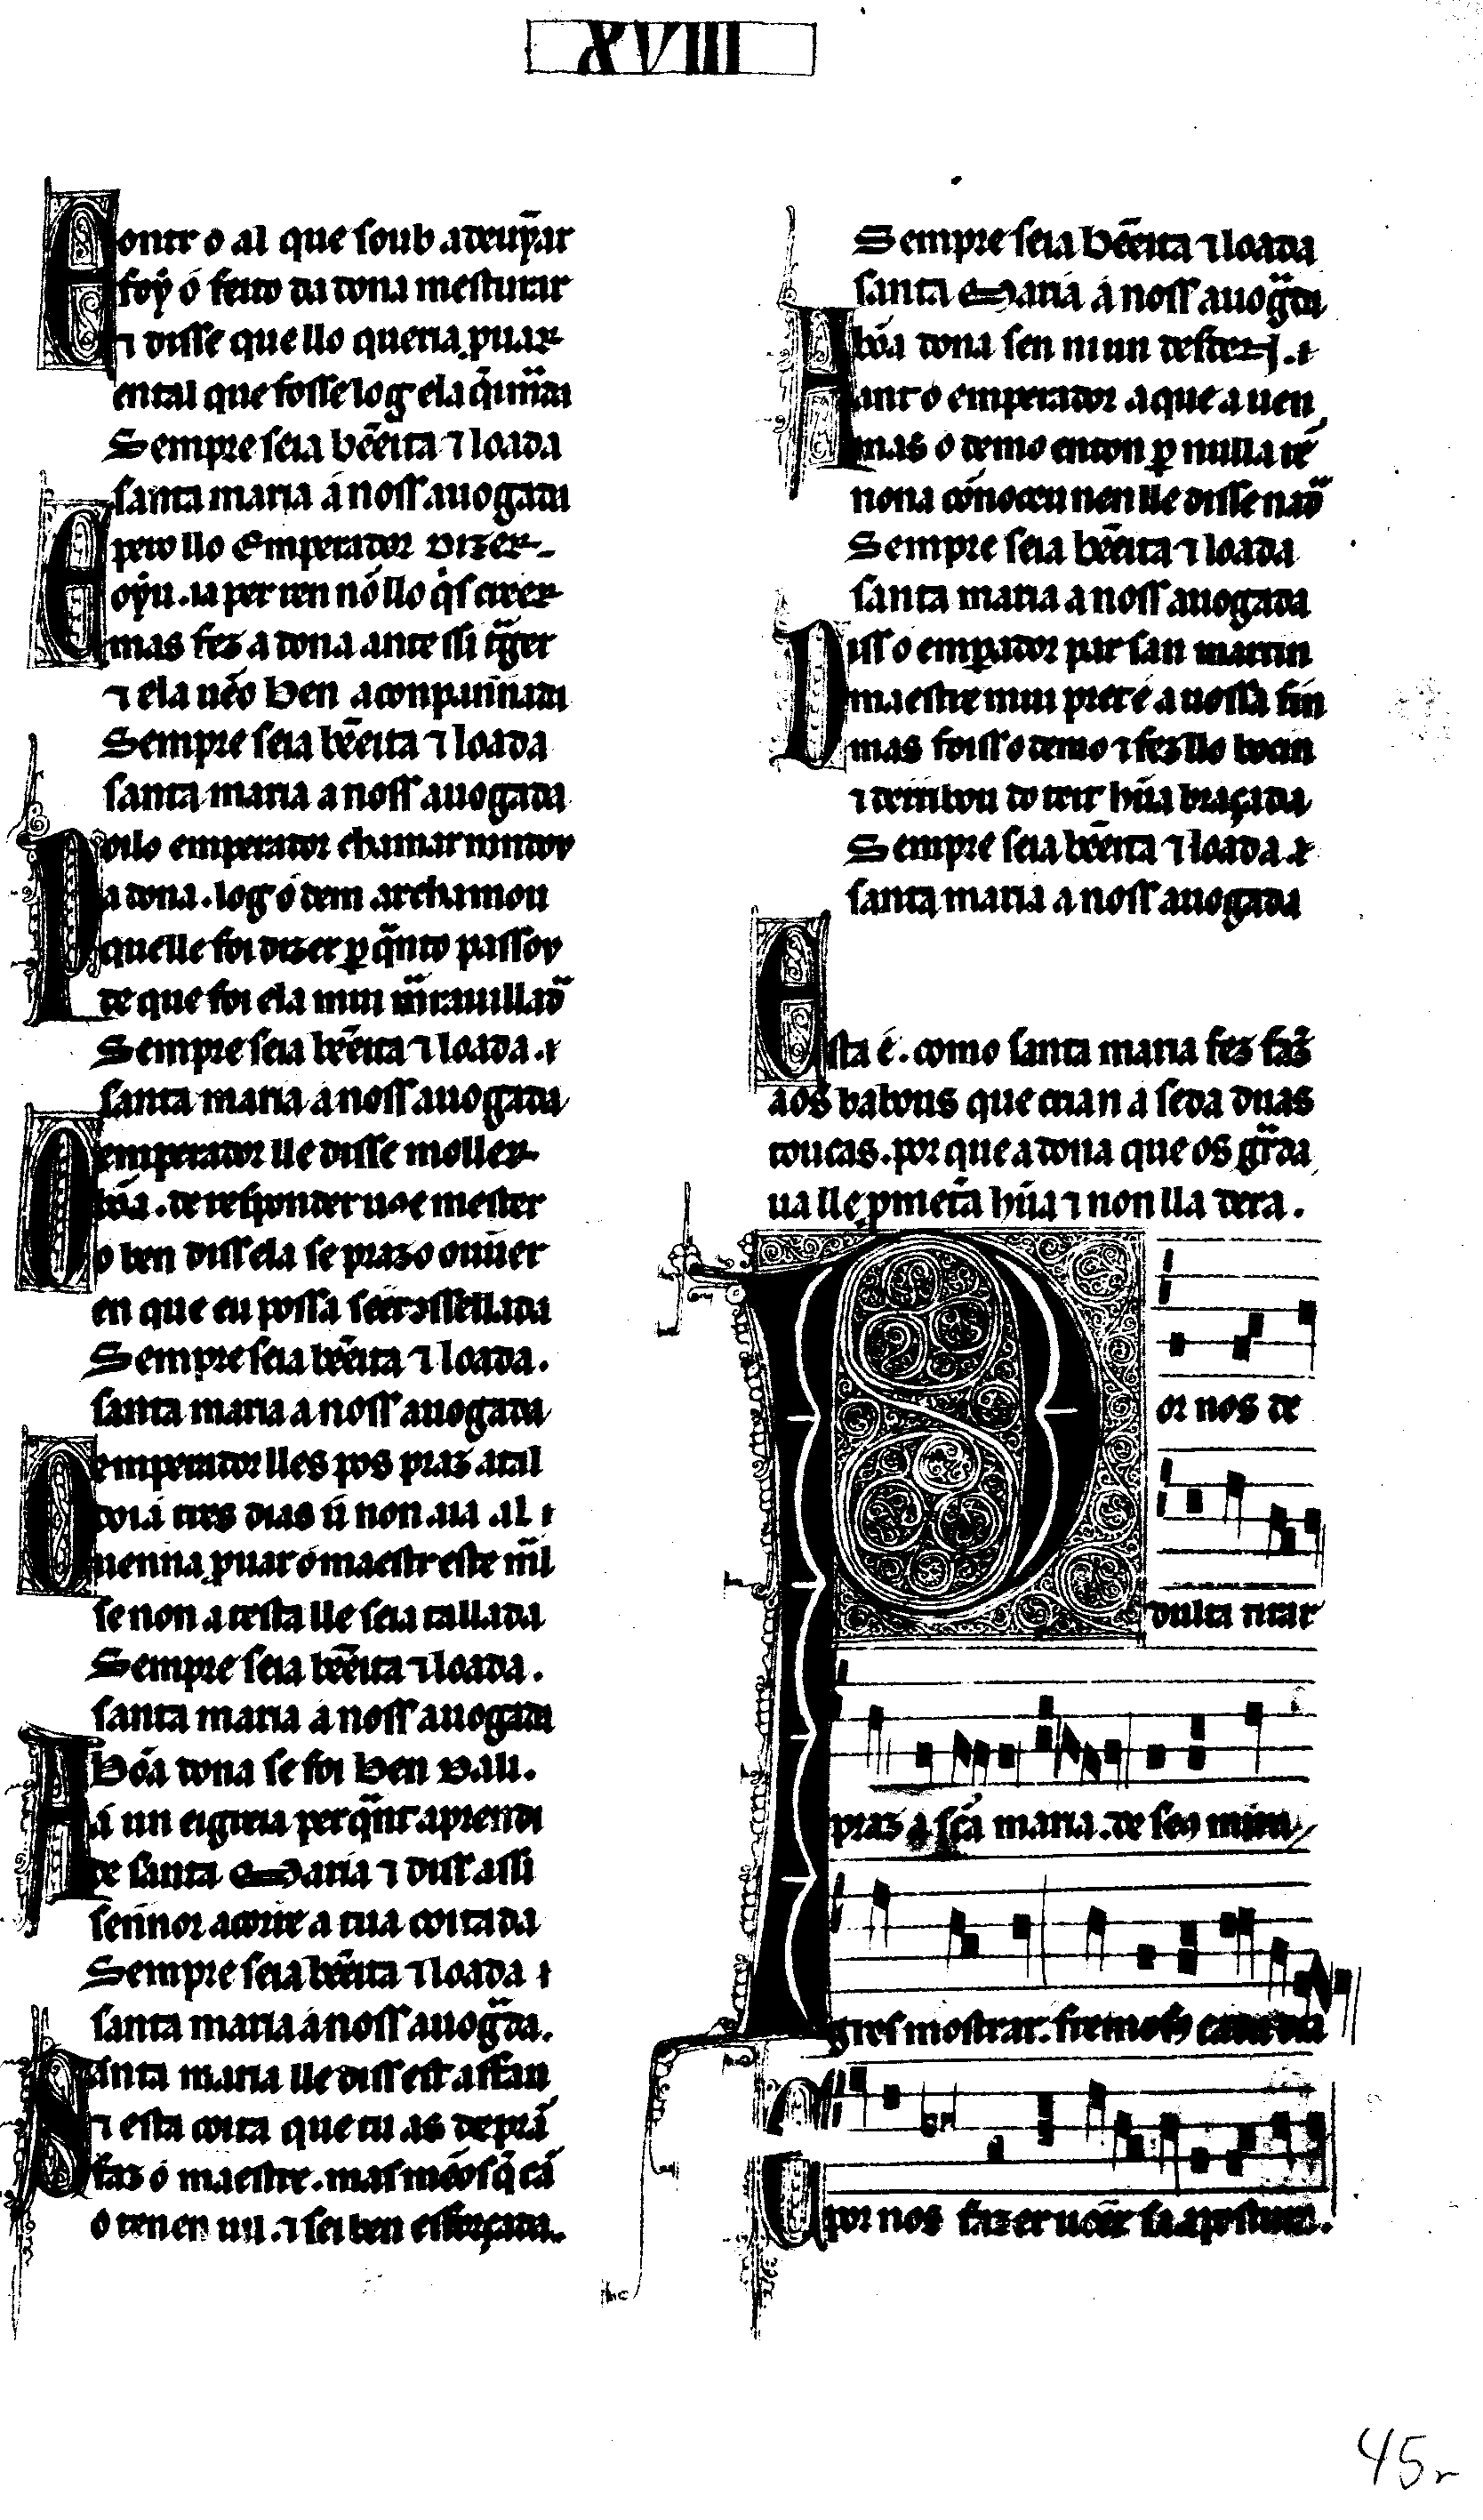 XVIII
Eontr o al que soub adeuỹar
foy o feito da dona mesturar
⁊ disse que llo queria ꝓuar
ental que fosse log ela q̇ima᷑da
Sempre seia bẽeita ⁊ loada
santa maria a noss auogada
E pero llo Emperador dizer
oyu. ia per ren nõ llo q̇s creer
mas fez a dona ante ssi tᷓger
⁊ ela uẽo ben aconpannada
Sempre seia bẽeita ⁊ loada
santa maria a noss auogada
Poilo emperador chamar mandou
a dona. log o dem ar chamou
quelle foi dizer ꝑ qᷓnto passou
de que foi ela mui mᷓrauillad᷑
Sempre seia bẽeita ⁊ loada. ⁊
santa maria a noss auogada
O emperador lle disse moller
bõa. de responder uos e mester
o ben diss ela se prazo ouuer
en que eu possa seer ↄssellada
Sempre seia bẽeita ⁊ loada.
santa maria a noss auogada
O emperador lles pos praz atal
doia tres dias ũ non aia al ⁊
uenna ꝓuar o maestr este mᷓl
se non a testa lle seia tallada
Sempre seia bẽeita ⁊ loada.
santa maria a noss auogada
A bõa dona se foi ben dali.
a un eigreia per qᷓnt aprendi
de santa Maria ⁊ diss assi
sennor acorre a tua coitada
Sempre seia bẽeita ⁊ loada ⁊
santa maria a noss auogᷓda.
Santa maria lle diss est affan
⁊ esta coita que tu as de prã
faz o maestre. mas mẽos q̇ cã
o ten en uil. ⁊ sei ben esforçada.
Sempre seia bẽeita ⁊ loada
santa Maria a noss auogᷓda
A bõa dona sen niun desden
ant o emperador aque a uen
mas o demo enton ꝑ nulla rẽ
nona cõnoceu nen lle disse nad᷑
Sempre seia bẽeita ⁊ loada
santa maria a noss auogada
Diss o emꝑador par san martin
maestre mui pret é a uossa fin
mas foiss o demo ⁊ fez llo bocin
⁊ derribou do teit hũa braçada
Sempre seia bẽeita ⁊ loada. ⁊
santa maria a noss auogada
Esta é. como santa maria fez faz̃
aos babous que crian a seda duas
toucas. por que a dona que os gᷓda
ua lle ꝓmetᷓa hũa ⁊ non lla dera.
Por nos de
dulta tirar
praz a sc̃a maria. de seus mira
gres mostrar. fremosos cada dia
E por nos fazer ueer sa apostura.
45r